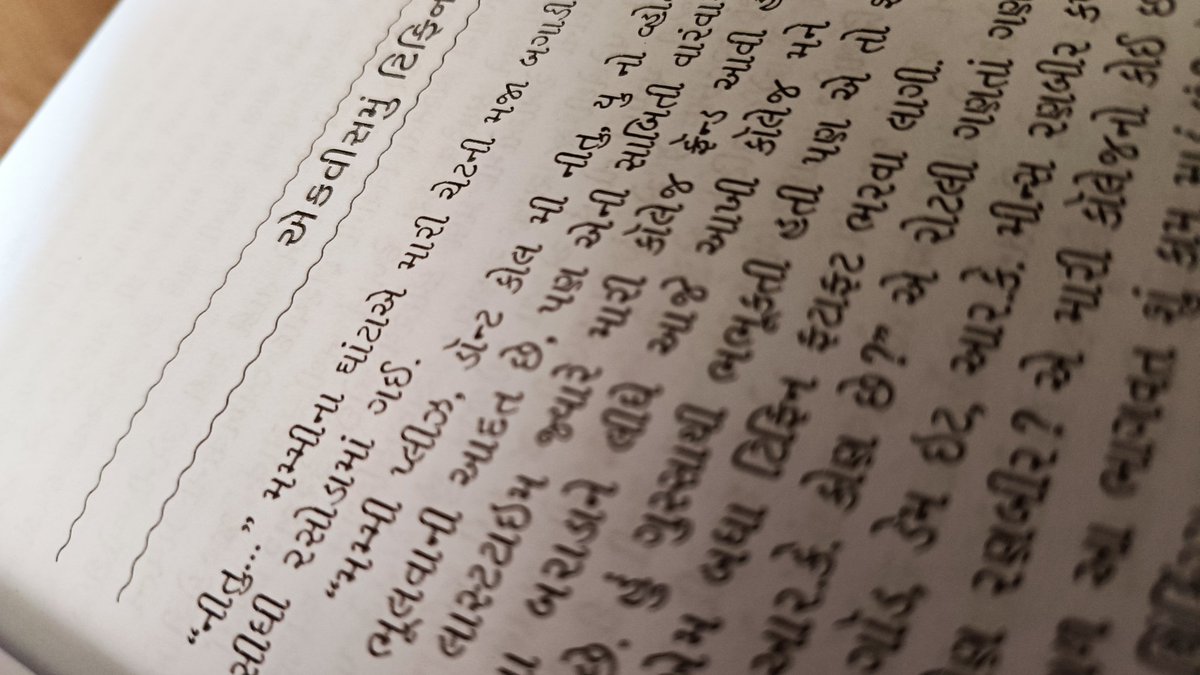 એકવીસમું ટિફિન
“નીતુ...” મમ્મીના ઘાંટાએ મારી ચેટની મજા બગાડી
સીધી રસોડામાં ગઈ.
“મમ્મી પ્લીઝ, ડોન્ટ કોલ મી નીતુ, યુ નો વ્હો
ભૂલવાની આદત છે, પણ એની સાબિતી વારંવા
લાસ્ટટાઇમ જ્યારે મારી કૉલેજ ફ્રેન્ડ આવી
બરાડાને લીધે આજે આખી કૉલેજ મને
છે. હું ગુસ્સાથી ભભૂકતી હતી પણ એ તો
એમ બધા ટિફિન ફટાફટ ભરવા લાગી.
આર.કે. કોણ છે?” એ રોટલી ગણતાં ગણ
ગોડ ડેમ ઈટ, આર.કે. મીન્સ રણબીર ક
રણબીર? એ મારી કૉલેજનો કોઈ છ
આ ભાગવત શું કામ મા